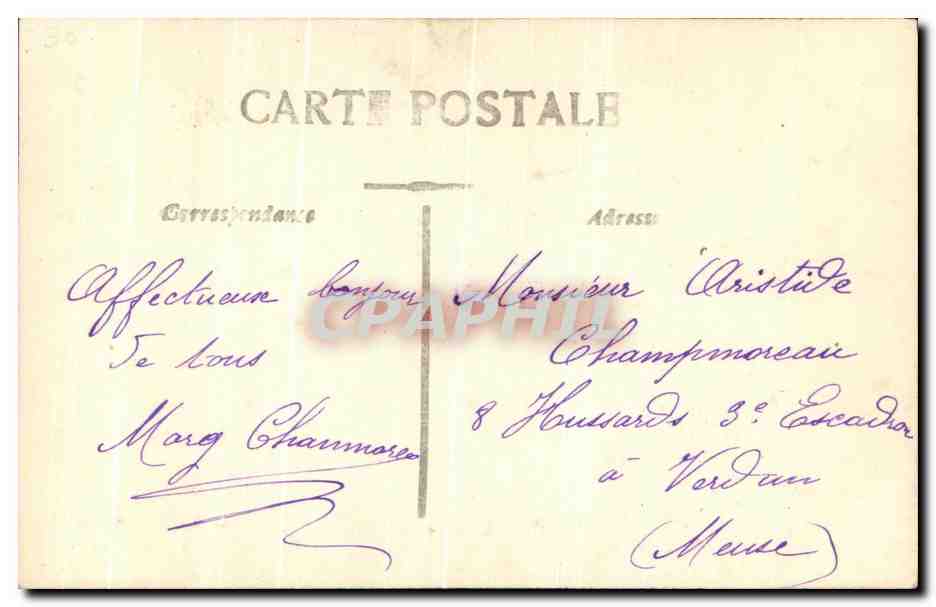 30
CARTE POSTALE
Correspondance
Adresse
Affectueuse bonjour
de tous
Marg Chaumoreau
Monsieur Aristide
Champmoreau
8 Hussards 3e Escadron
à Verdun
(Meuse)
CPAPHIL